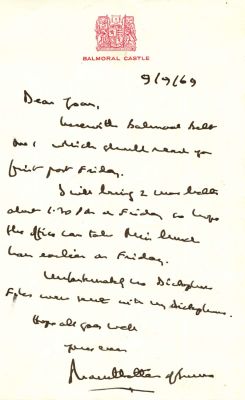 BALMORAL CASTLE
9/9/69
Dear Joan,
Herewith Balmoral Belt
No 1 which should reach you
first post Friday.
I will bring 2 more belts
about 1.30 PM on Friday so hope
the office can take their lunch
hour earlier on Friday.
Unfortunately no Dictaphone
Files were sent with my Dictaphone.
Hope all goes well
yours ever
Mountbatten of Burma